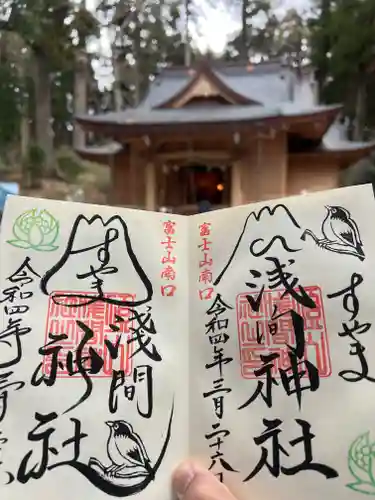 すやま
浅間神社
富士南口
令和四年三月二十六
富士南口
すやま
浅間
神社
令和四年三月